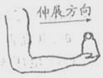 伸展方向